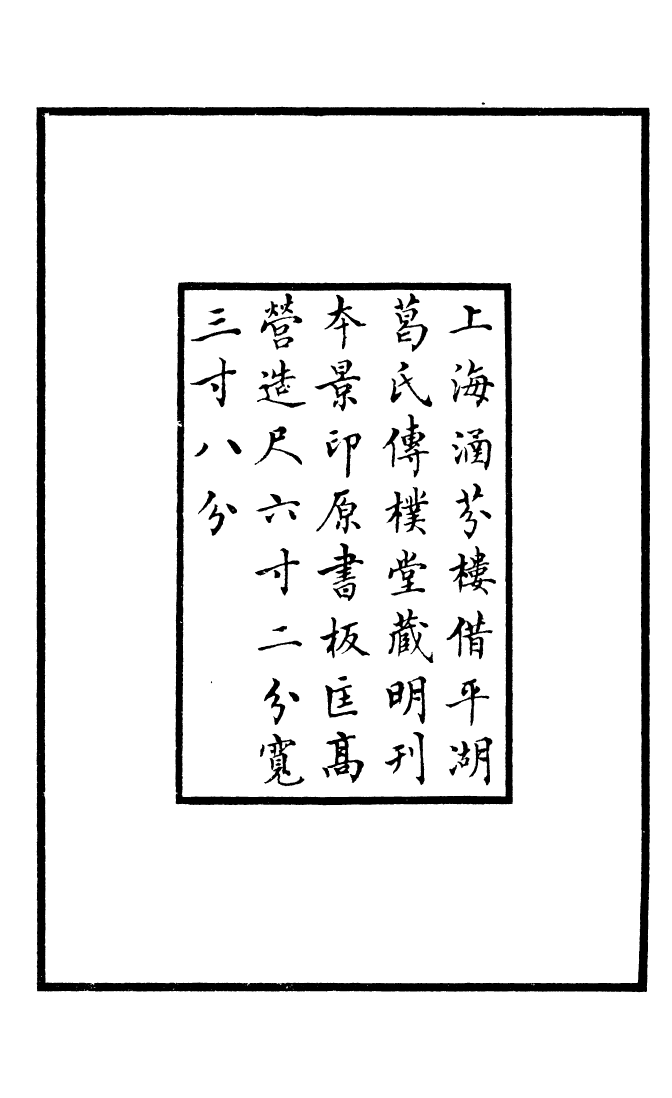 上海涵芬樓借平湖
葛氏傳樸堂藏明刊
本景印原書板匡高
營造尺六寸二分寬
三寸八分